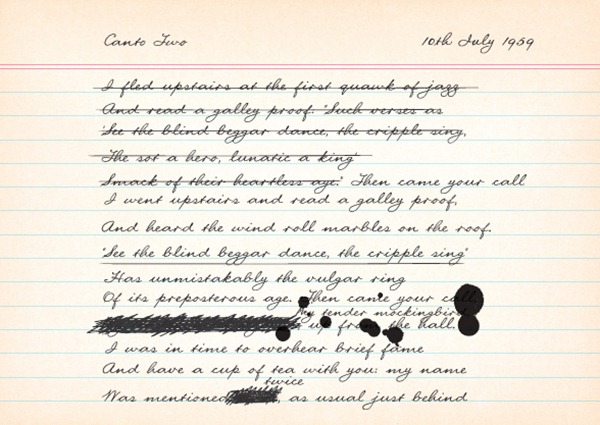 Canto Two 10th July 1959
I fled upstairs at the first quawk of jazz
And read a galley proof: "Such verses as
'See the blind beggar dance, the cripple sing,
The sot a hero, lunatic a king'
Smack of their heartless age." Then came your call
I went upstairs and read a galley proof,
And heard the wind roll marbles on the roof.
"See the blind beggar dance, the cripple sing"
Has unmistakably the vulgar ring
Of its preposterous age. Then came your call,
My tender mockingbird
up from the hall.
I was in time to overhear brief fame
And have a cup of tea with you: my name
twice
Was mentioned , as usual just behind